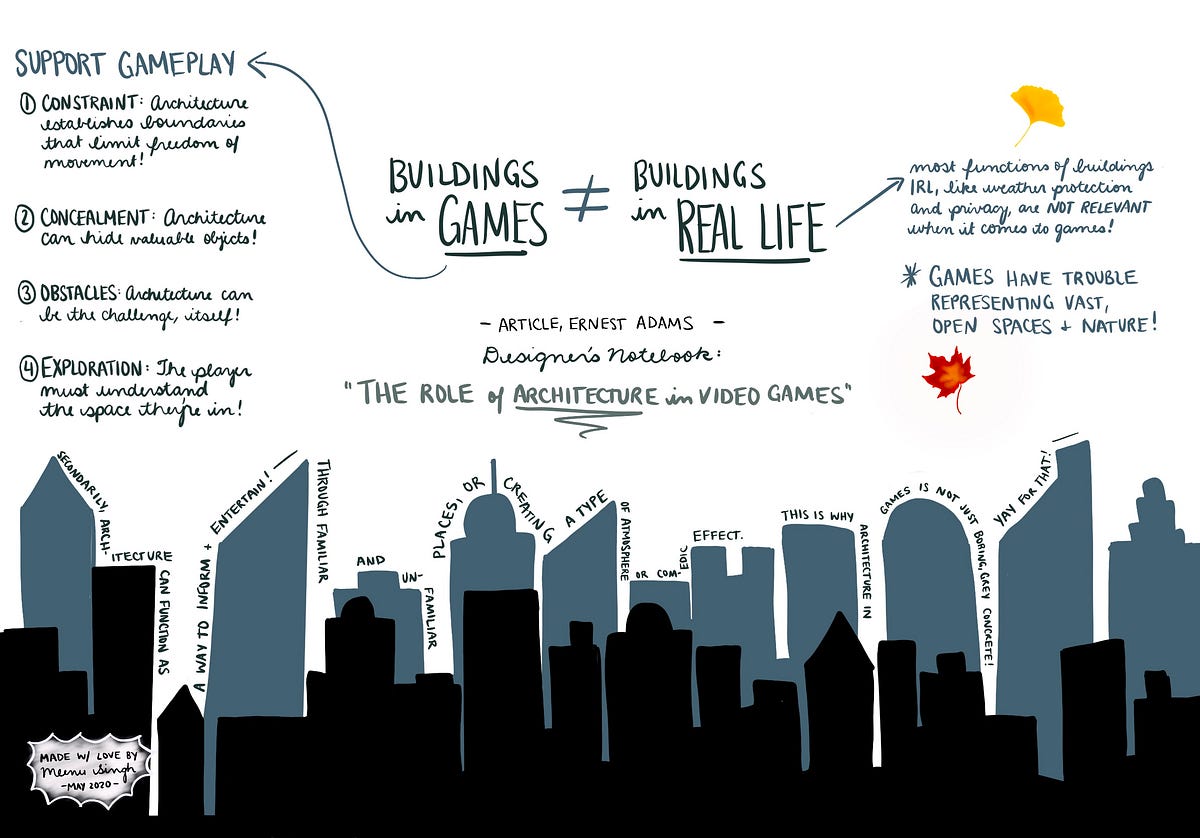 SUPPORT GAMEPLAY
① CONSTRAINT: Architecture
establishes boundaries
that limit freedom of
movement!
② CONCEALMENT: Architecture
can hide valuable objects!
③ OBSTACLES: Architecture can
be the challenge, itself!
④ EXPLORATION: The player
must understand
the space they're in!
BUILDINGS
in GAMES
≠
BUILDINGS
in REAL LIFE
most functions of buildings
IRL, like weather protection
and privacy, are NOT RELEVANT
when it comes to games!
* GAMES HAVE TROUBLE
REPRESENTING VAST,
OPEN SPACES + NATURE!
- ARTICLE, ERNEST ADAMS -
Designer's Notebook:
"THE ROLE of ARCHITECTURE in VIDEO GAMES"
SECONDARILY, ARCH-
ITECTURE
CAN FUNCTION AS
A WAY TO INFORM +
ENTERTAIN!
THROUGH FAMILIAR
AND
UN-
FAMILIAR
PLACES, OR
CREATING
A TYPE
OF ATMOSPHERE
OR COM-
EDIC
EFFECT.
THIS IS WHY
ARCHITECTURE IN
GAMES IS NOT JUST
BORING, GREY CONCRETE!
YAY FOR THAT!
MADE W/ LOVE BY
Meenu Singh
-MAY 2020-